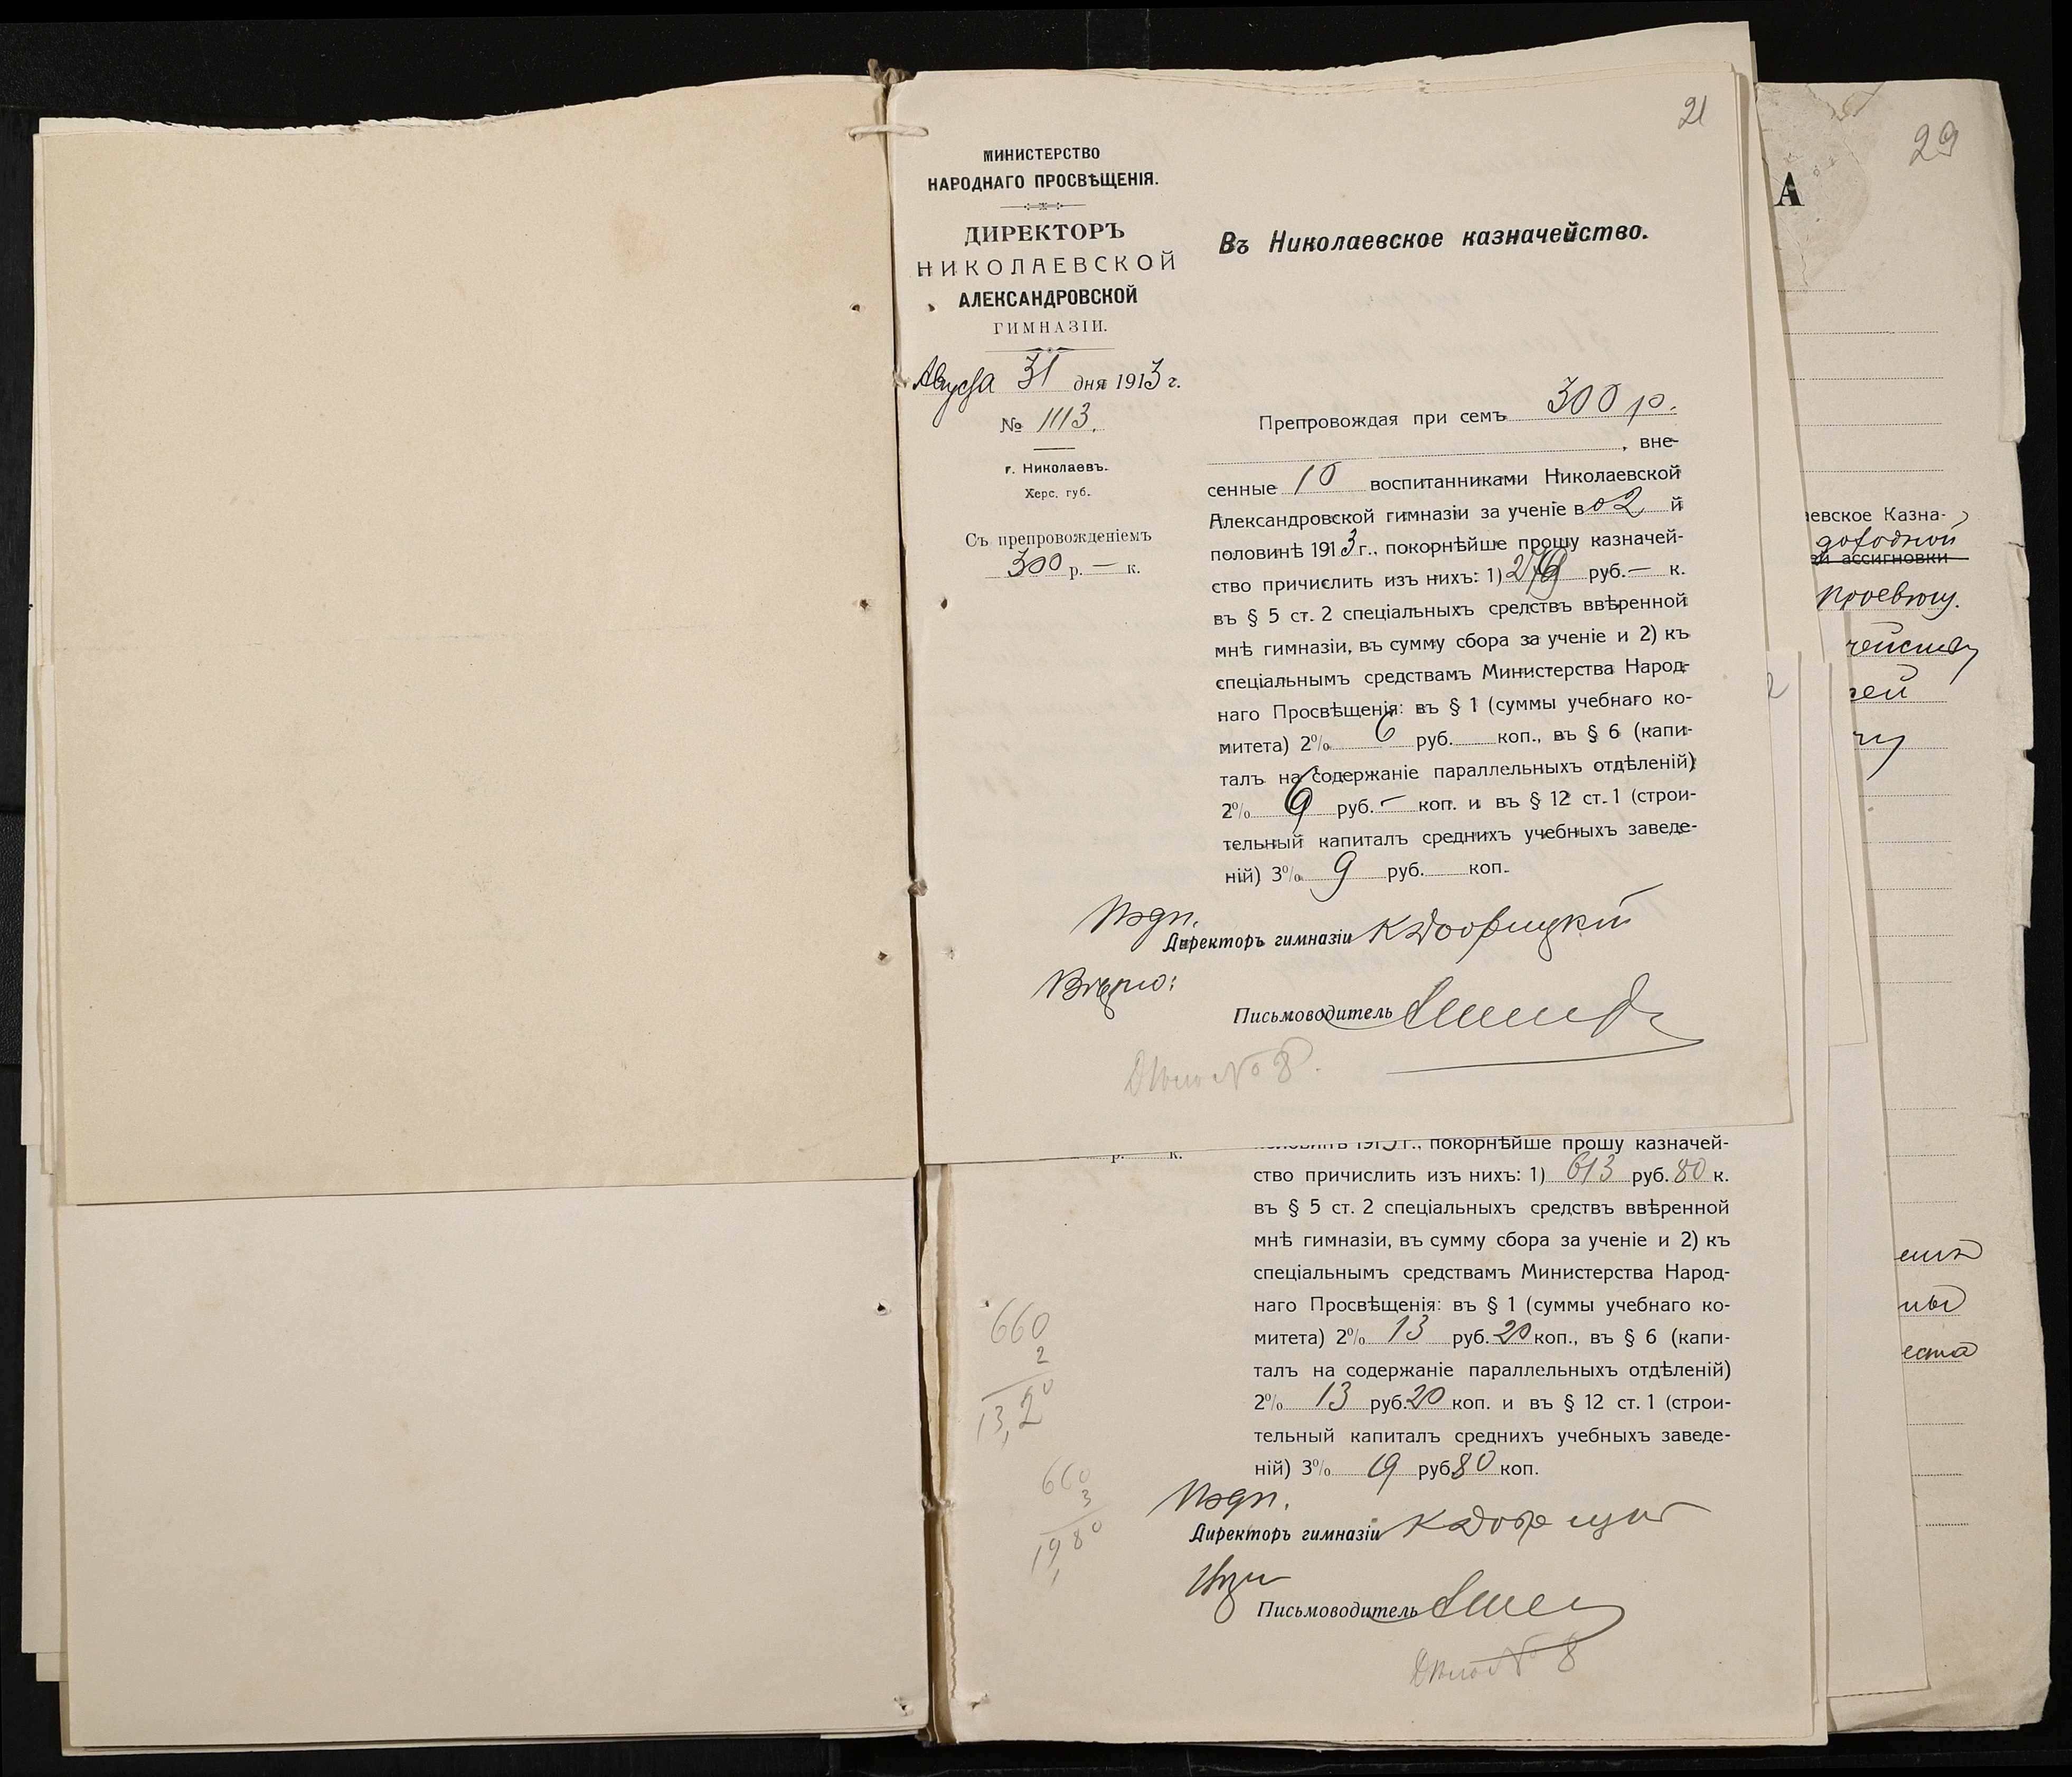 21
МИНИСТЕРСТВО
НАРОДНАГО ПРОСВѢЩЕНІЯ.
ДИРЕКТОРЪ
НИКОЛАЕВСКОЙ
АЛЕКСАНДРОВСКОЙ
ГИМНАЗІИ.
Августа 31 дня 1913 г.
№ 1113.
г. Николаевъ.
Херс. губ.
Съ препровожденіемъ
300 р. — к.
Въ Николаевское казначейство.
Препровождая при семъ 300 р.
, вне-
сенные 10 воспитанниками Николаевской
Александровской гимназіи за ученіе во 2 й
половинѣ 1913 г., покорнѣйше прошу казначей-
ство причислить изъ нихъ: 1) 279 руб. — к.
въ § 5 ст. 2 спеціальныхъ средствъ ввѣренной
мнѣ гимназіи, въ сумму сбора за ученіе и 2) къ
спеціальнымъ средствамъ Министерства Народ-
наго Просвѣщенія: въ § 1 (суммы учебнаго ко-
митета) 2% 6 руб. коп., въ § 6 (капи-
талъ на содержаніе параллельныхъ отдѣленій)
2% 6 руб. — коп. и въ § 12 ст. 1 (строи-
тельный капиталъ среднихъ учебныхъ заведе-
ній) 3% 9 руб. коп.
Подп.
Директоръ гимназіи К
Вѣрно:
Письмоводитель
Дѣло № 8.
половинѣ 1913 г., покорнѣйше прошу казначей-
р. к.
ство причислить изъ нихъ: 1) 613 руб. 80 к.
въ § 5 ст. 2 спеціальныхъ средствъ ввѣренной
мнѣ гимназіи, въ сумму сбора за ученіе и 2) къ
спеціальнымъ средствамъ Министерства Народ-
наго Просвѣщенія: въ § 1 (суммы учебнаго ко-
митета) 2% 13 руб. 20 коп., въ § 6 (капи-
талъ на содержаніе параллельныхъ отдѣленій)
2% 13 руб. 20 коп. и въ § 12 ст. 1 (строи-
тельный капиталъ среднихъ учебныхъ заведе-
ній) 3% 19 руб. 80 коп.
660
2
13,20
660
3
19,80
Подп.
Директоръ гимназіи К
Письмоводитель
Дѣло № 8
29
А
аевское Казна-
доходной
ей ассигновки